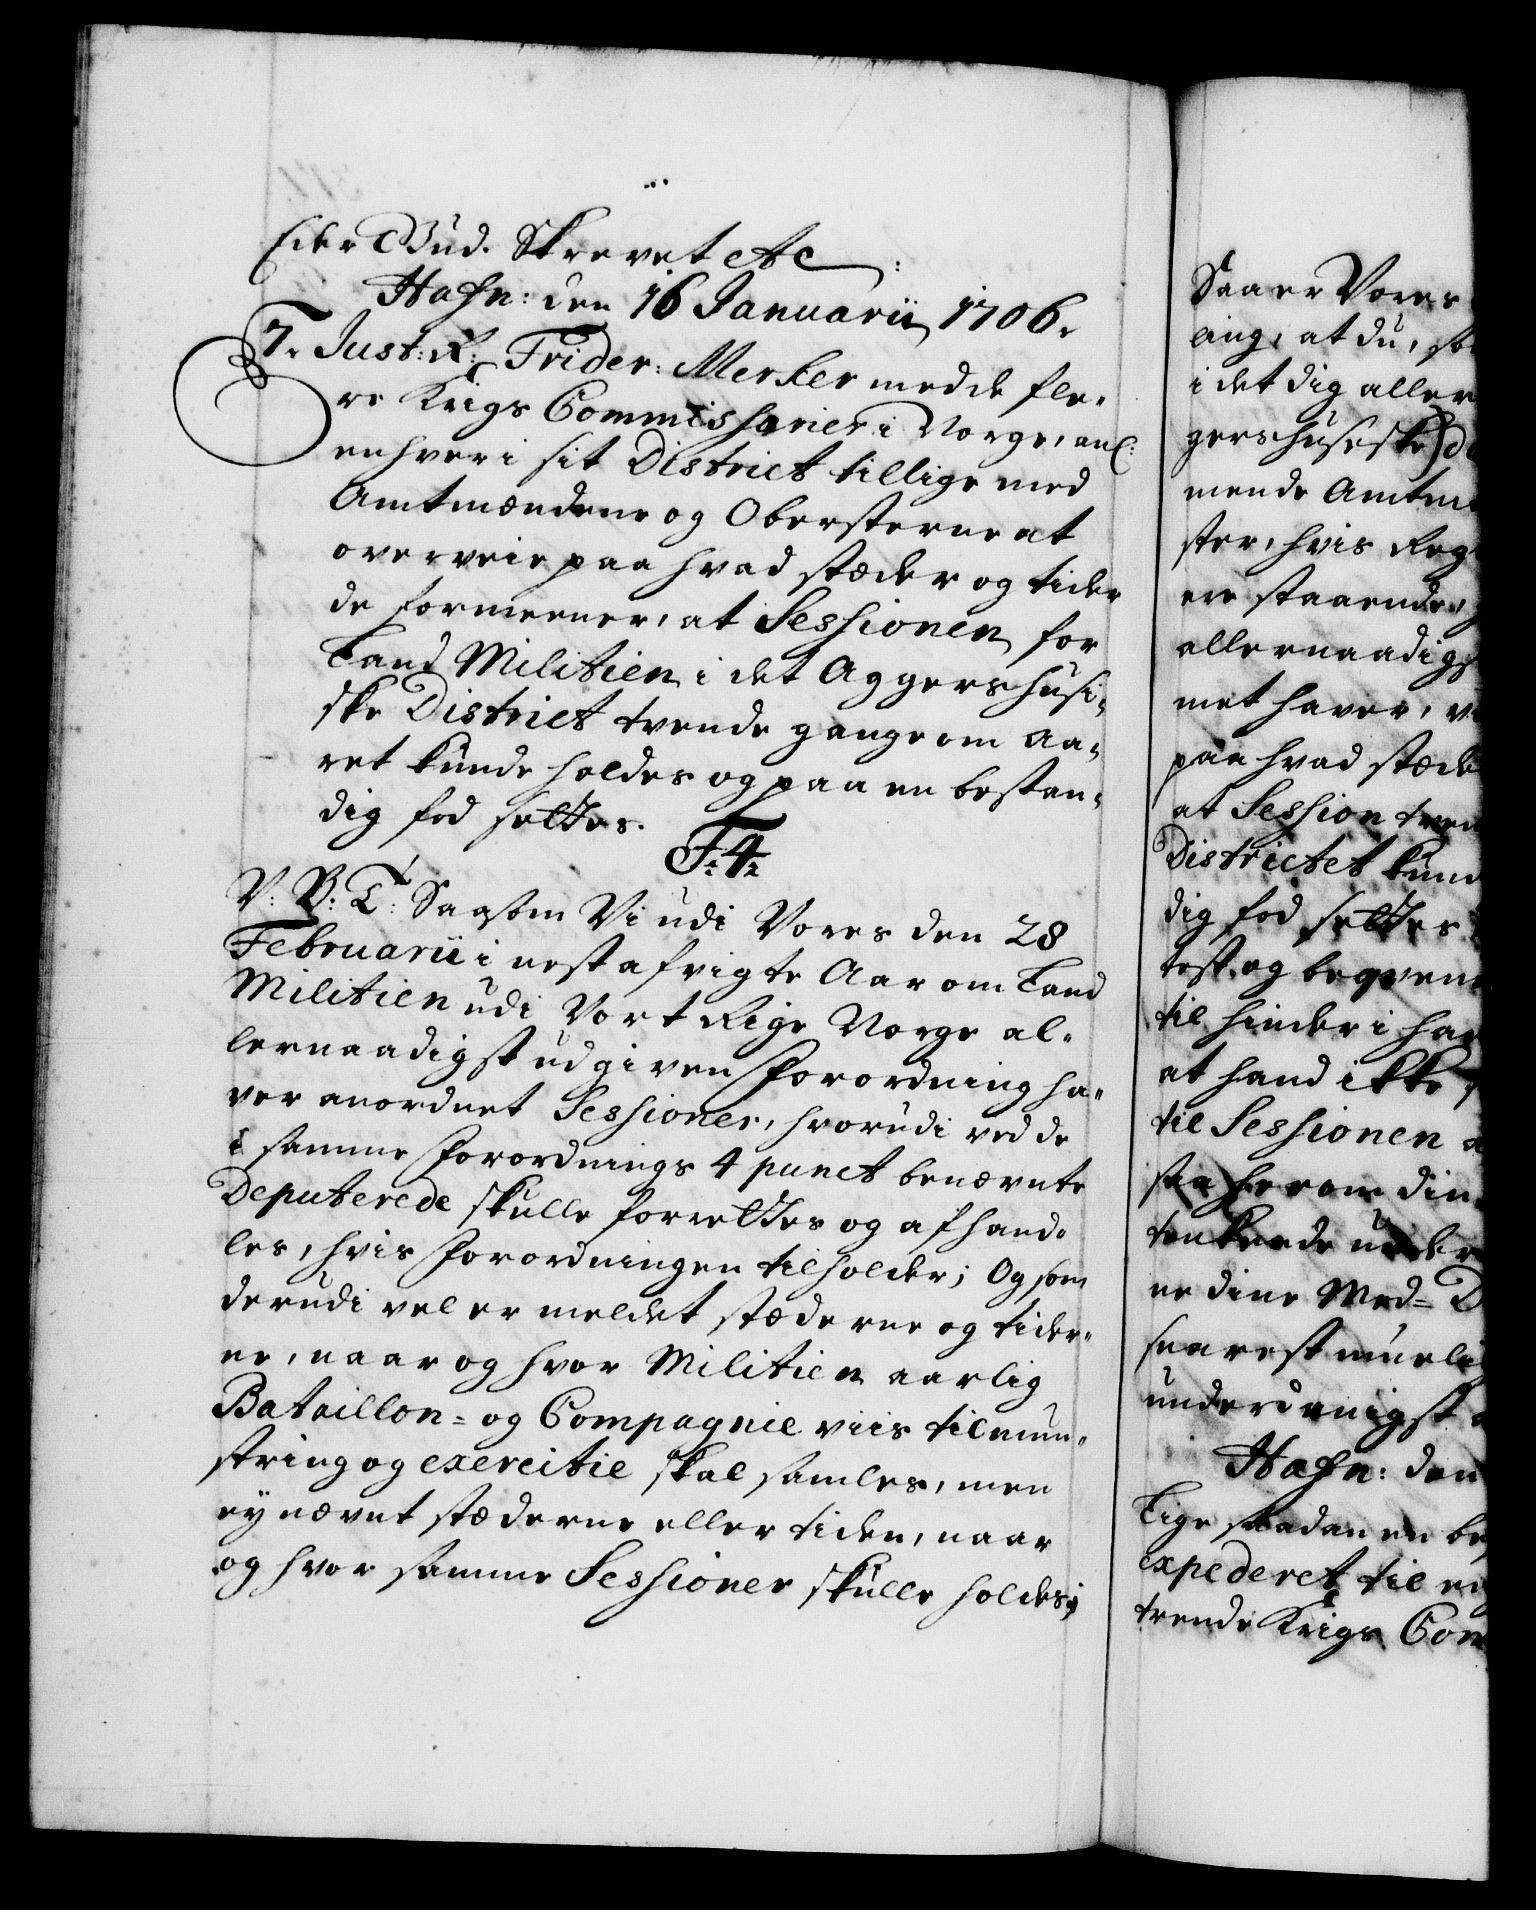 Eder Gud. Skrevet etc:
Hafn: den 16 Januarii 1706.
T. Just: R: Frider: Merker med de fle-
re Krigs Commissarier i Norge, anl:
enhver i sit District tillige med
Amtmændene og Obersterne at
overveie paa hvad stæder og tider
de formeener, at Sessionen for
Land Militien i det Aggershusi-
ske District tvende gange om Aa-
ret kunde holdes og paa en bestan-
dig fod settes.
F. 4.
V: B: T: Saasom Vi udi Vores den 28
Februarii i nest afvigte Aar om Land
Militien udi Vort Rige Norge al-
lernaadigst udgiven Forordning ha-
ver anordnet Sessioner, hvorudi ved de
i samme Forordnings 4 punct benævnte
Deputerede skulle forrettes og afhand-
les, hvis Forordningen tilholder; Og som
derudi vel er meldet stæderne og tider-
ne, naar og hvor Militien aarlig
Bataillon- og Compagnie viis til mun-
string og exercitie skal samles, men
ey nævnt stæderne eller tiden, naar
og hvor samme Sessioner skulle holdes;
Saa er Vores
ling, at du, so
i det dig aller
gershusiske) d
mende Amtm
ster, hvis Reg
ere staaende,
allernaadigs
met haver, v
paa hvad stæde
at Session tven
Districtet kund
dig fod settes
test og beqvem
til hinder i han
at hand ikke
til Sessionen
saa herom din
tenkende under
ne dine Med- D
snarest muelig
underdanigst
Hafn: den
Lige saadan en be
expederet til en
trende Krigs Com